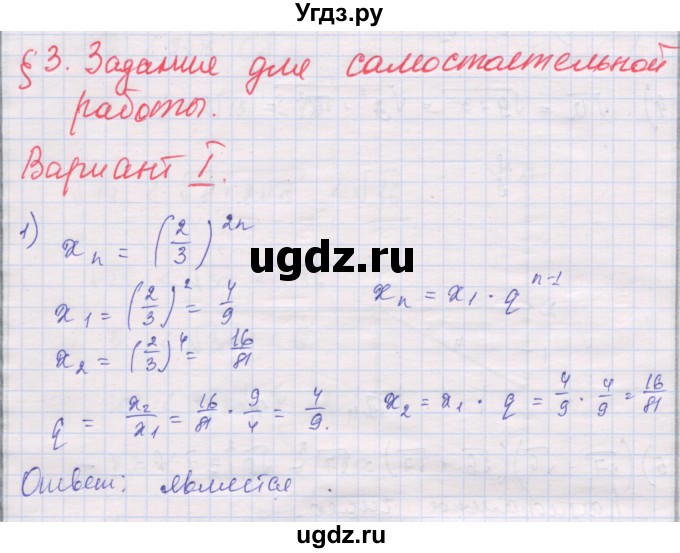 Угдз.ру
§ 3. Задание для самостоятельной
работы.
Вариант I.
1) xₙ = (2/3)²ⁿ
ugdz.ru
x₁ = (2/3)² = 4/9    xₙ = x₁ · qⁿ⁻¹
x₂ = (2/3)⁴ = 16/81
q = x₂/x₁ = 16/81 · 9/4 = 4/9.    x₂ = x₁ · q = 4/9 · 4/9 = 16/81
Ответ: является.
ugdz.ru